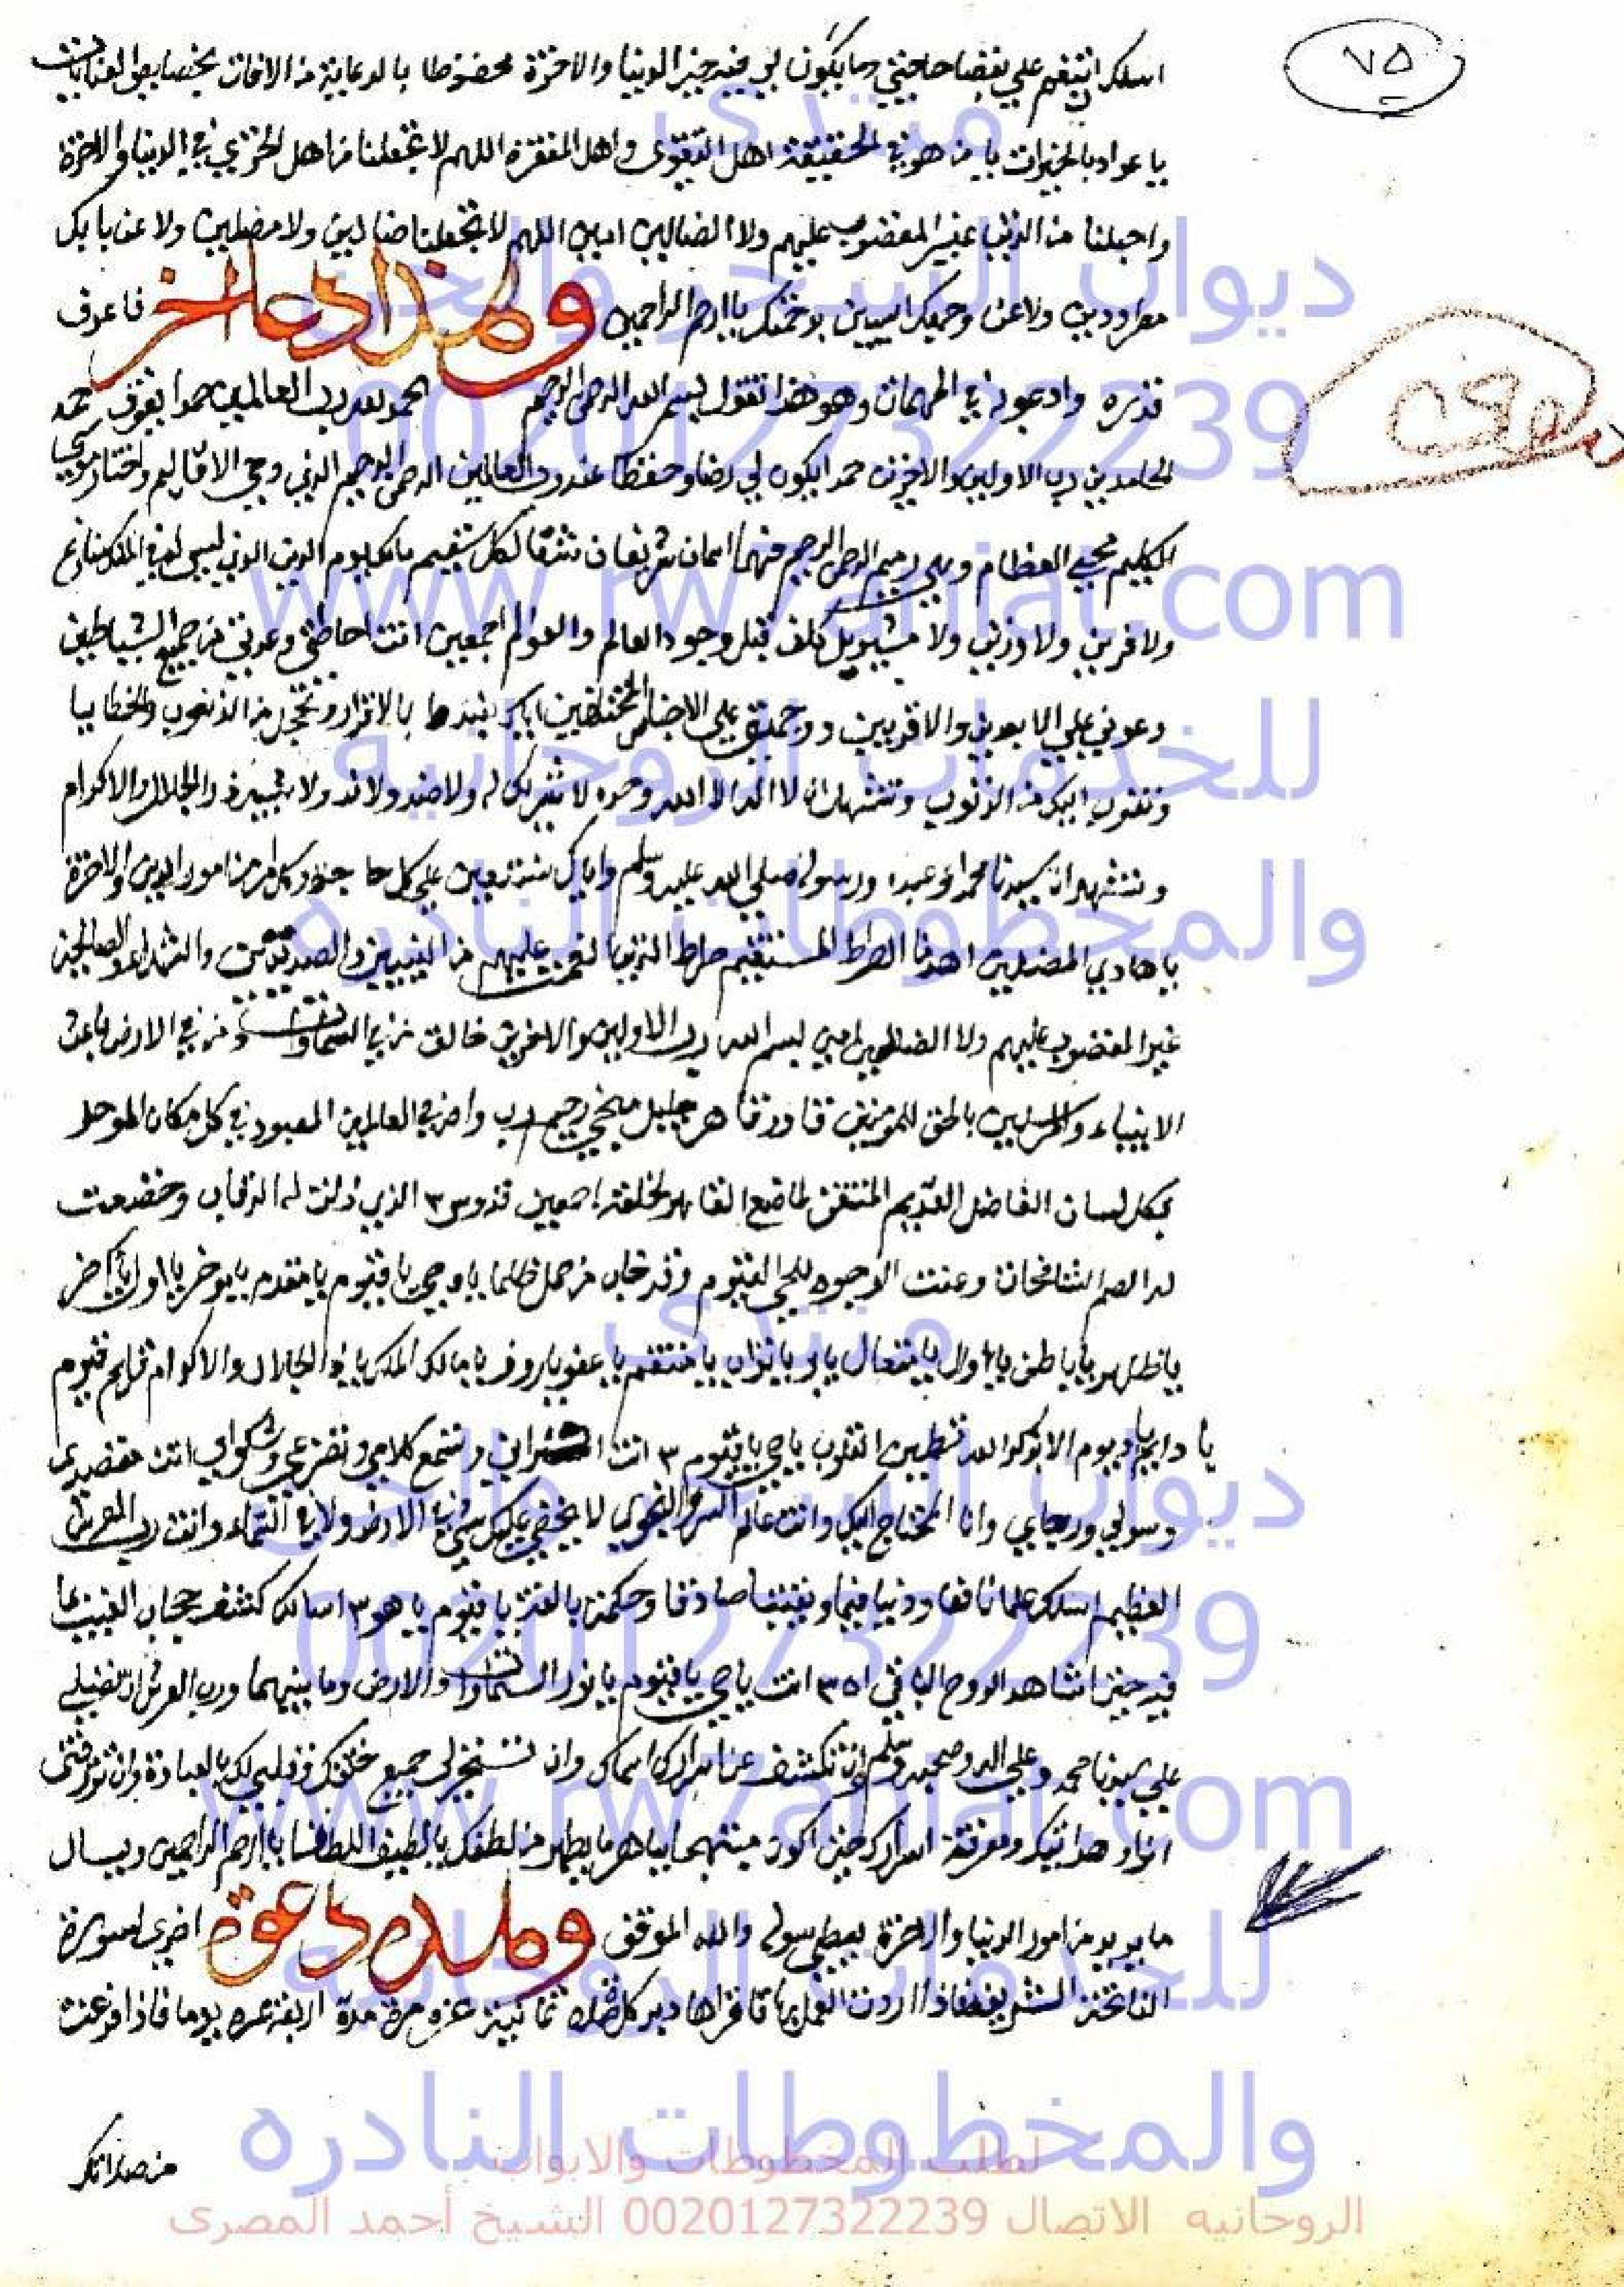 ٧٥
اسلك ان تنعم علي بقضا حاجتي وما يكون لي فيه خير الدنيا والاخرة محفوظا بالرعاية من الافات بخصايص العنايات
يا عواد بالخيرات يا من هو في الحقيقة اهل التقوى واهل المغفرة اللهم لا تجعلنا من اهل الخزي في الدنيا والاخرة
واجعلنا من الذين غير المغضوب عليهم ولا الضالين امين اللهم لا تجعلنا ضالين ولا مضلين ولا عن بابك
مطرودين ولا عن رحمتك ايسين برحمتك يا ارحم الراحمين وهذا دعا اخر فاعرف
قدره وادعو به في المهمات وهو هذا تقول بسم الله الرحمن الرحيم الحمد لله رب العالمين حمدا يفوق حمد
الحامدين رب الاولين والاخرين حمدا يكون لي رضا وحفظا عند رب العالمين الرحمن الرحيم الذي دحي الاقاليم واختار موسى
الكليم محي العظام وهي رميم الرحمن الرحيم فهما اسمان شريفان شفا لكل سقيم مالك يوم الدين الذي ليس له في الملك منازع
ولا قرين ولا وزير ولا مشير بل كلف قبل وجود العالم والعوالم اجمعين انت احاطتي وعوني من جميع الشياطين
وعوني علي الابعدين والاقربين علي الاجناس المختلفين اياك نعبد بالاقرار من الذنوب والخطايا
ونتوب اليك من الذنوب ونشهد ان لا اله الا الله وحده لا شريك له ولا ضد ولا ند ولا ذو الجلال والاكرام
ونشهد ان سيدنا محمدا عبده ورسوله صلى الله عليه وسلم واياك نستعين على كل حاجة وكل امر من امور الدين والاخرة
يا هادي المضلين اهدنا الصراط المستقيم صراط الذين انعمت عليهم من النبيين والصديقين والشهداء والصالحين
غير المغضوب عليهم ولا الضالين امين بسم الله رب الاولين والاخرين خالق من في السماوات ومن في الارض باعث
الانبياء والمرسلين بالحق للمؤمنين قادر قاهر جليل رحيم رب العالمين المعبود في كل مكان الموحد
بكل لسان الفاضل القديم المتقن القاهر لخلقه اجمعين قدوس ٣ الذي ذلت له الرقاب وخضعت
له الصم الشامخات وعنت الوجوه للحي القيوم وقد خاب من حمل ظلما يا حي يا قيوم يا مقدم يا موخر يا اول يا اخر
يا ظاهر يا باطن يا والي يا متعال يا بر يا تواب يا منتقم يا عفو يا روف يا مالك الملك يا ذا الجلال والاكرام قيوم
يا دايم الا بذكر الله تطمين القلوب يا حي يا قيوم ٣ انت تراني وتسمع كلامي وتضرعي وشكواي انت مقصدي
وسولي ورجاي وانا المحتاج اليك وانت عالم السر والنجوى لا يخفى عليك شي في الارض ولا في السماء وانت رب العرش
العظيم اسلك علما نافعا ودينا قيما ويقينا صادقا وحكمة بالغة يا قيوم يا هو ٣ اسالك كشف حجاب الغيب عما
فيه حتى اشاهد الروح الباقي انت يا حي يا قيوم يا نور السماوات والارض وما بينهما ورب العرش ان تصلي
على سيدنا محمد وعلى اله وصحبه وسلم وان تكشف عن اسرار اسماك وان تسخر لي جميع خلقك بالعبادة وان ترزقني
انوار هدايتك ومعرفة اسرارك حتى اكون مبتهجا من لطفك يا لطيف يا ارحم الراحمين ويسال
ما يريد من امور الدنيا والاخرة يعطى سوله والله الموفق وهذه دعوة اخرى لسورة
الفاتحة الشريفة فاذا اردت العمل بها فاقراها دبر كل صلاة ثمانية عشر مرة مدة اربعة عشر يوما فاذا فرغت
من صلاتك
منتدى
ديوان السحر والجن
0020127322239
www.rw7aniat.com
للخدمات الروحانيه
والمخطوطات النادره
منتدى
ديوان السحر والجن
0020127322239
www.rw7aniat.com
للخدمات الروحانيه
والمخطوطات النادره
لطلب المخطوطات والابواب
الروحانيه الاتصال 0020127322239 الشيخ أحمد المصرى